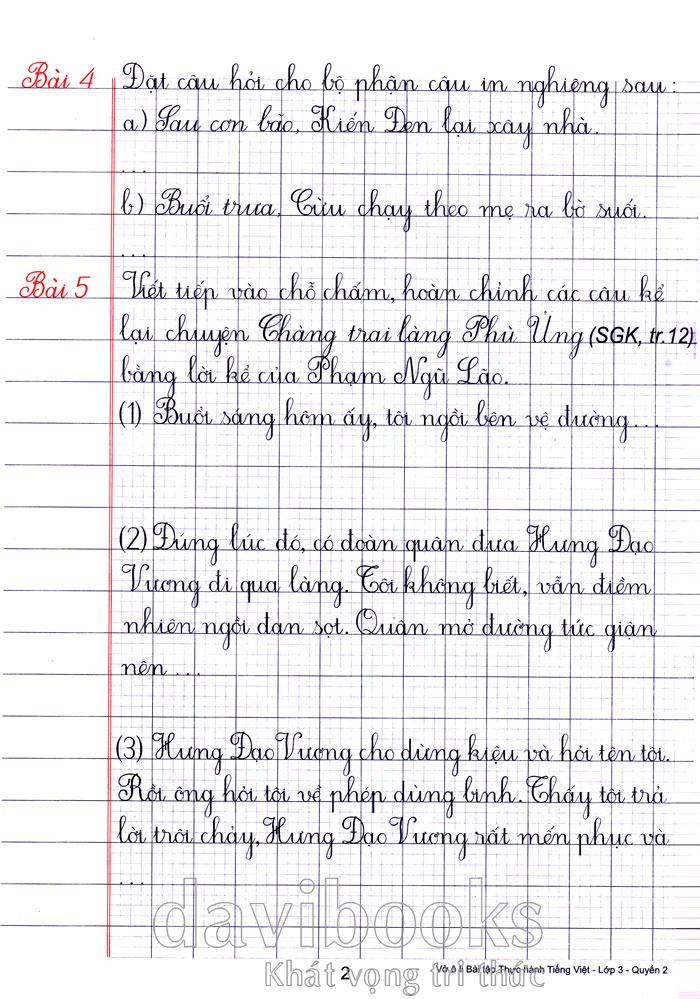 Bài 4 Đặt câu hỏi cho bộ phận câu in nghiêng sau :
a) Sau cơn bão, Kiến Đen lại xây nhà.
...
b) Buổi trưa, Cừu chạy theo mẹ ra bờ suối.
...
Bài 5 Viết tiếp vào chỗ chấm, hoàn chỉnh các câu kể
lại chuyện Chàng trai làng Phù Ủng (SGK, tr.12)
bằng lời kể của Phạm Ngũ Lão.
(1) Buổi sáng hôm ấy, tôi ngồi bên vệ đường...
(2) Đúng lúc đó, có đoàn quân đưa Hưng Đạo
Vương đi qua làng. Tôi không biết, vẫn điềm
nhiên ngồi đan sọt. Quân mở đường tức giận
nên ...
(3) Hưng Đạo Vương cho dừng kiệu và hỏi tên tôi.
Rồi ông hỏi tôi về phép dùng binh. Thấy tôi trả
lời trôi chảy, Hưng Đạo Vương rất mến phục và
...
davibooks
Khát vọng tri thức
2 Vở ô li Bài tập Thực hành Tiếng Việt - Lớp 3 - Quyển 2